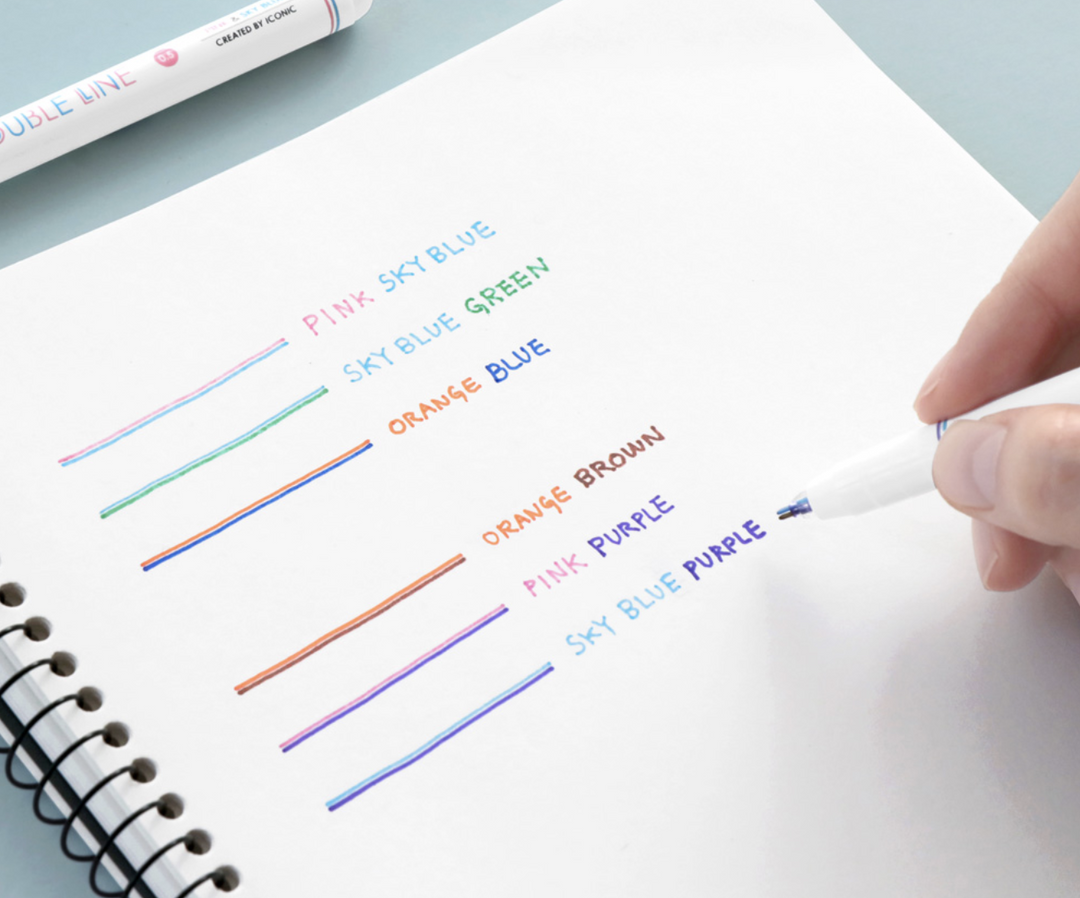 DOUBLE LINE 0.5
PINK & SKY BLUE
CREATED BY ICONIC
PINK SKY BLUE
SKY BLUE GREEN
ORANGE BLUE
ORANGE BROWN
PINK PURPLE
SKY BLUE PURPLE